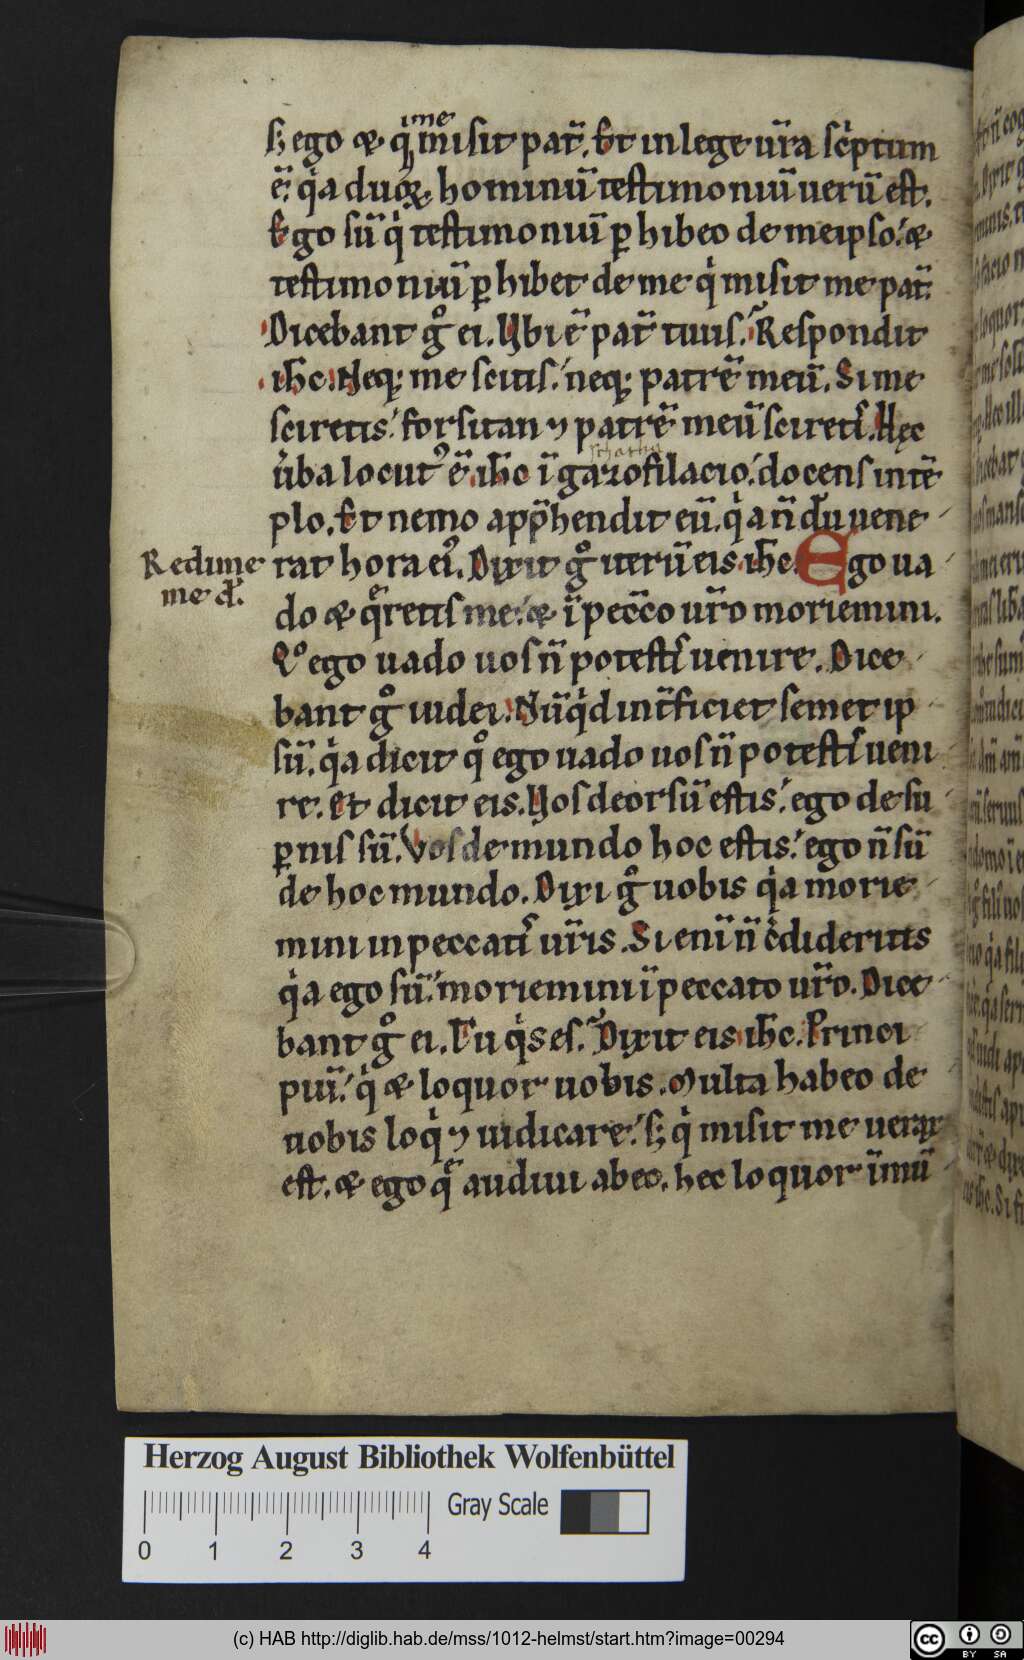 ime
sꝫ ego & q̇ misit pat̄. Et in lege ur̄a sc̄ptum
ē. q̇a duoꝝ hominū testimoniū uerū est.
Ego sū q̇ testimoniū ꝑhibeo de meipso. &
testimoniū ꝑhibet de me q̇ misit me pat̄.
Dicebant gͦ ei. Vbi ē pat̄ tuus. Respondit
ih̄c. Neqꝫ me scitis. neqꝫ patrē meū. Si me
sciretis. forsitan ⁊ patrē meū sciretis. Hęc
u̇ba locutꝰ ē ih̄c ī gazofilacio. docens in tē
plo. Et nemo app̄hendit eū. q̇a n̄ dū uene
Redime
me d̄.
rat hora eiꝰ. Dixit gͦ iterū eis ih̄c. Ego ua
do & q̄retis me. & ī pecc̄o ur̄o moriemini.
Qͦ ego uado uos n̄ potestis uenire. Dice
bant gͦ iudei. Nūq̇d int̄ficiet semet ip
sū. q̇a dicit qͦ ego uado uos n̄ potestis ueni
re. Et dicit eis. Vos deorsū estis. ego de su
ꝑnis sū. Vos de mundo hoc estis. ego n̄ sū
de hoc mundo. Dixi gͦ uobis q̇a morie
mini in peccatis ur̄is. Si enī n̄ c̄dideritis
q̇a ego sū. moriemini ī peccato ur̄o. Dice
bant gͦ ei. Tu q̇s es. Dixit eis ih̄c. Princi
piū. q̇ & loquor uobis. Multa habeo de
uobis loq̇ ⁊ iudicare. sꝫ q̇ misit me uerax
est. & ego q̄ audiui ab eo. hec loquor ī mū
Herzog August Bibliothek Wolfenbüttel
Gray Scale
0 1 2 3 4
(c) HAB http://diglib.hab.de/mss/1012-helmst/start.htm?image=00294
cc BY SA